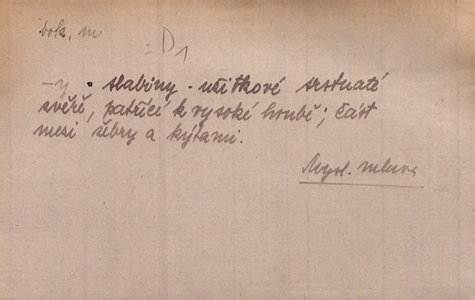 bok, m
: D1
-y · slabiny · užitkové srstnaté
zvěře, patřící k vysoké honbě; část
mezi žebry a kýtami.
Mysl. mluva